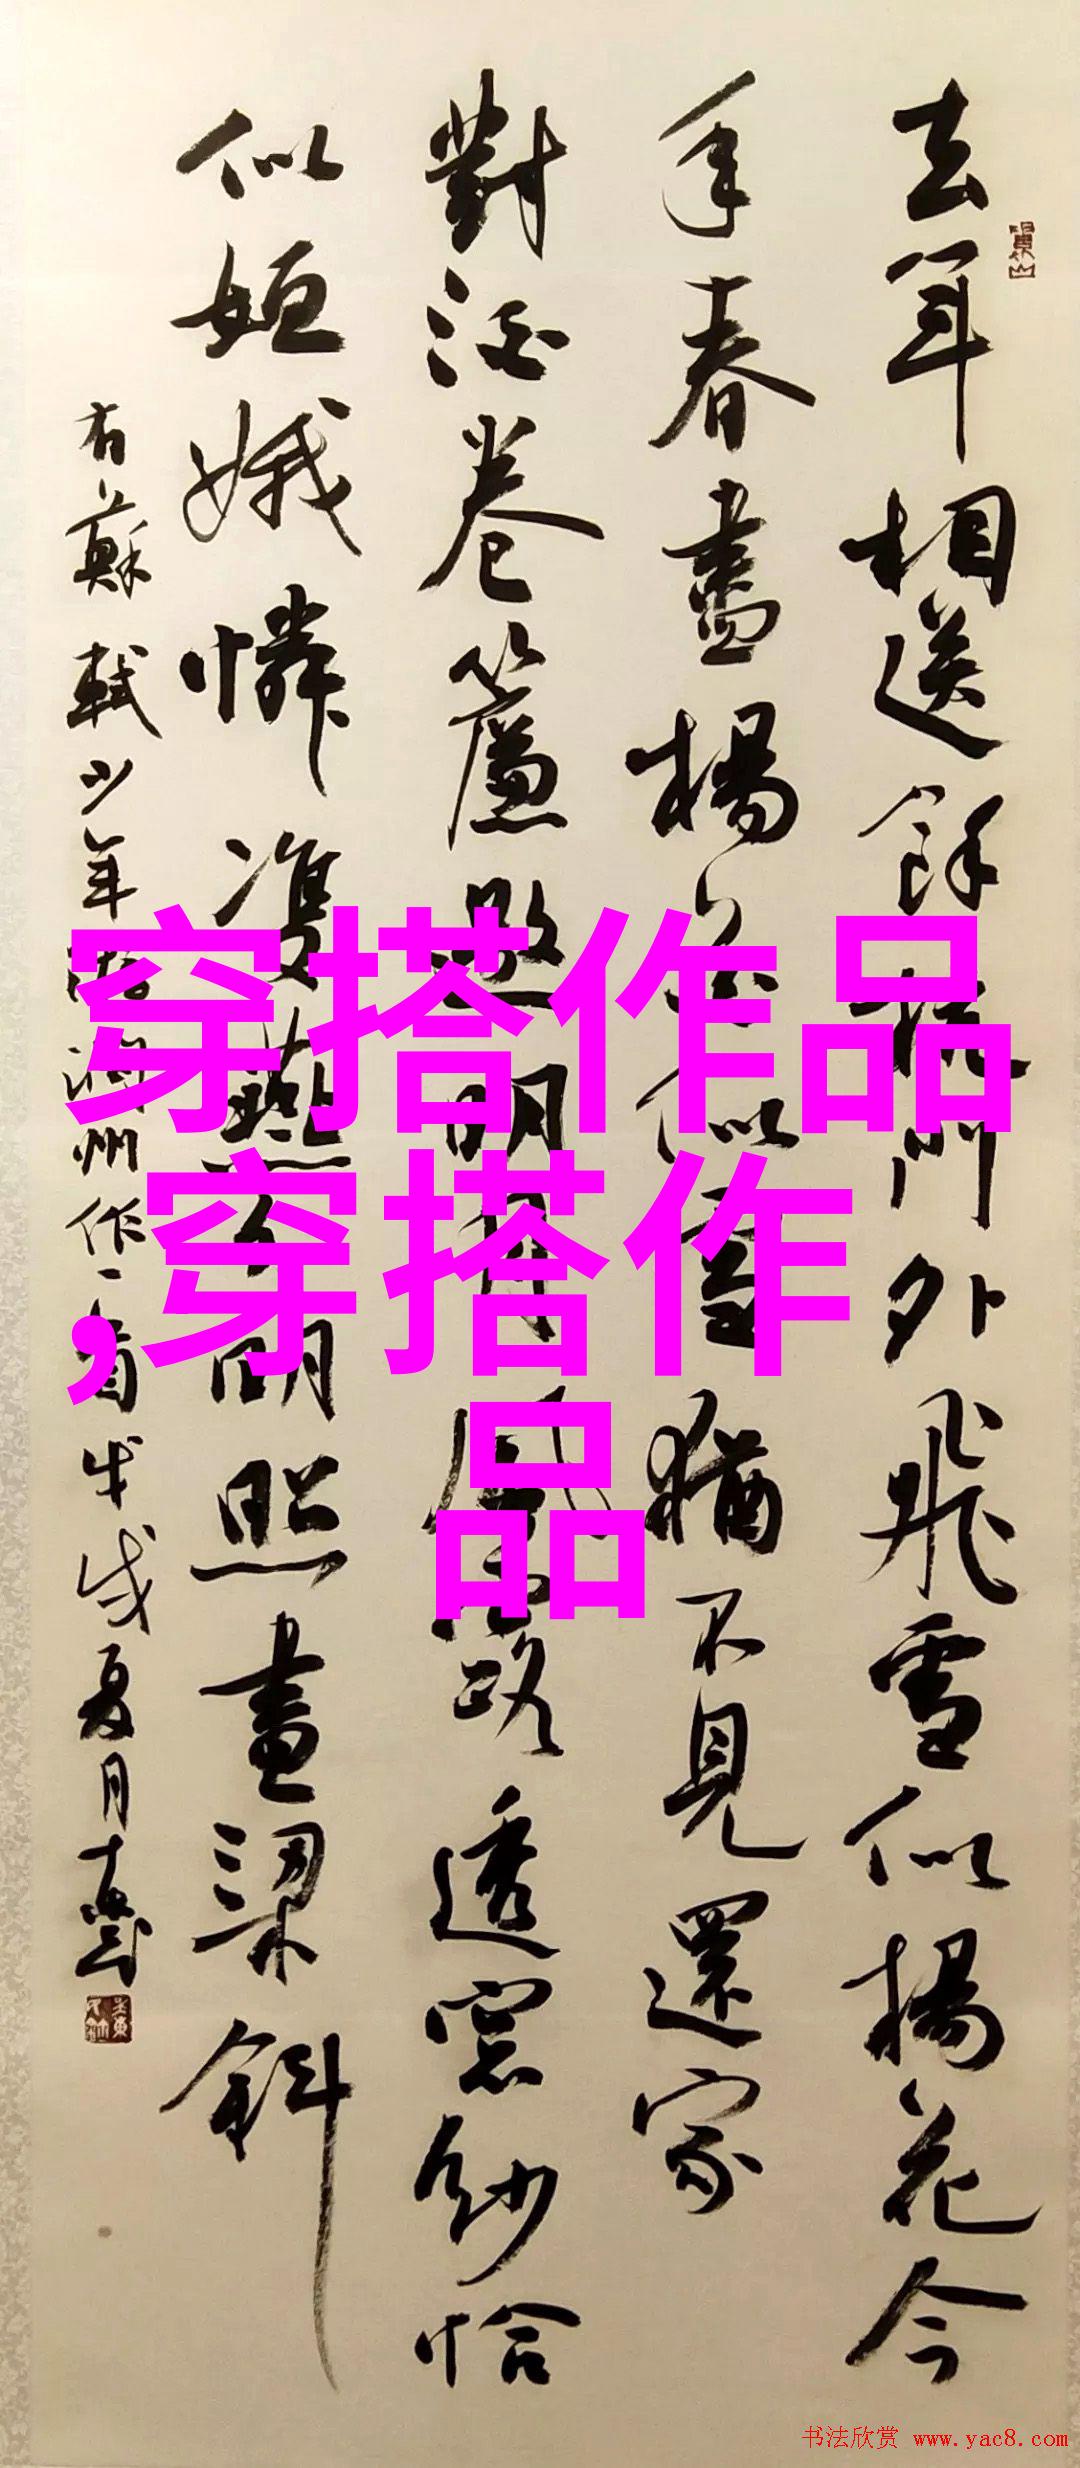 去年相送餘杭門外飛雪似楊花今
年春盡楊花似雪猶不見還家
對酒卷簾邀明月風露透窓紗恰
似姮娥憐雙燕分明照畫梁斜
右蘇軾少年游潤州作一首戊戌夏月
穿搭作品
,穿搭作
品
书法欣赏 www.yac8.com